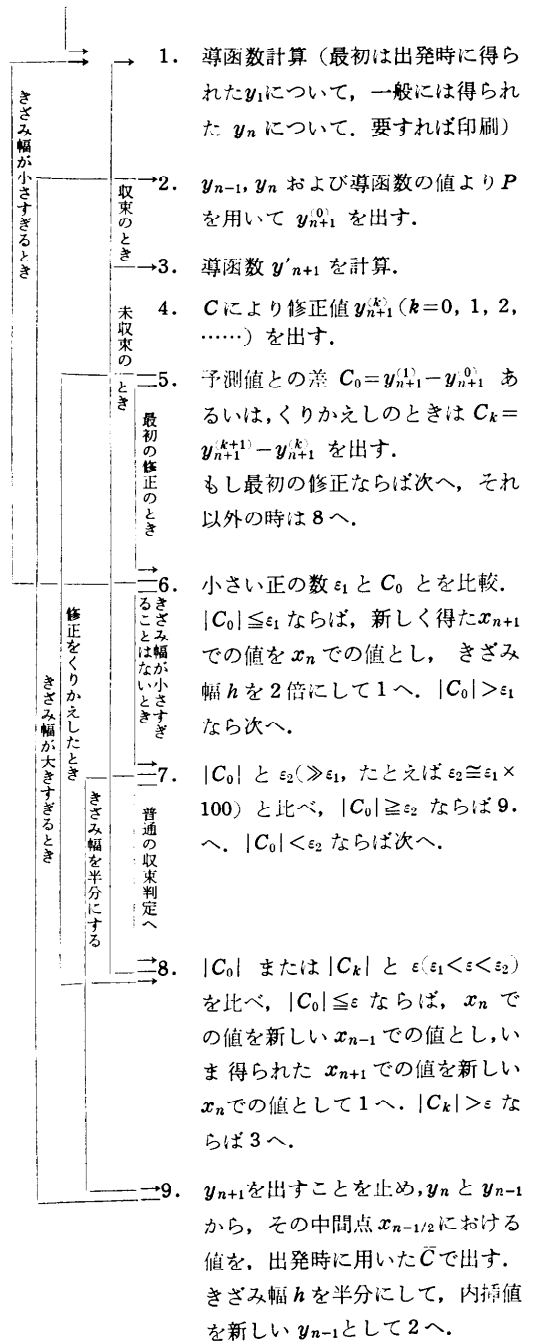 1. 導函数計算（最初は出発時に得ら
れたy₁について，一般には得られ
た yₙ について．要すれば印刷）
2. yₙ₋₁, yₙ および導函数の値よりP
を用いて yₙ₊₁⁽⁰⁾ を出す．
3. 導函数 y′ₙ₊₁ を計算．
4. Cにより修正値 yₙ₊₁⁽ᵏ⁾ (k=0, 1, 2,
……) を出す．
5. 予測値との差 C₀=yₙ₊₁⁽¹⁾−yₙ₊₁⁽⁰⁾ あ
るいは，くりかえしのときは Cₖ=
yₙ₊₁⁽ᵏ⁺¹⁾−yₙ₊₁⁽ᵏ⁾ を出す．
もし最初の修正ならば次へ，それ
以外の時は8へ．
6. 小さい正の数 ε₁ と C₀ とを比較．
|C₀|≦ε₁ ならば，新しく得たxₙ₊₁
での値を xₙ での値とし， きざみ
幅 h を2倍にして1へ．|C₀|>ε₁
なら次へ．
7. |C₀| と ε₂(≫ε₁, たとえば ε₂≅ε₁×
100) と比べ，|C₀|≧ε₂ ならば 9.
へ．|C₀|<ε₂ ならば次へ．
8. |C₀| または |Cₖ| と ε(ε₁<ε<ε₂)
を比べ，|C₀|≦ε ならば，xₙ で
の値を新しい xₙ₋₁ での値とし,い
ま 得られた xₙ₊₁ での値を新しい
xₙでの値として1へ．|Cₖ|>ε な
らば3へ．
9. yₙ₊₁を出すことを止め,yₙ と yₙ₋₁
から，その中間点 xₙ₋₁/₂における
値を，出発時に用いたC̄で出す．
きざみ幅 h を半分にして，内挿値
を新しい yₙ₋₁として2へ．
きざみ幅が小さすぎるとき
収束のとき
未収束のとき
最初の修正のとき
きざみ幅が小さすぎ
ることはないとき
修正をくりかえしたとき
きざみ幅が大きすぎるとき
きざみ幅を半分にする
普通の収束判定へ